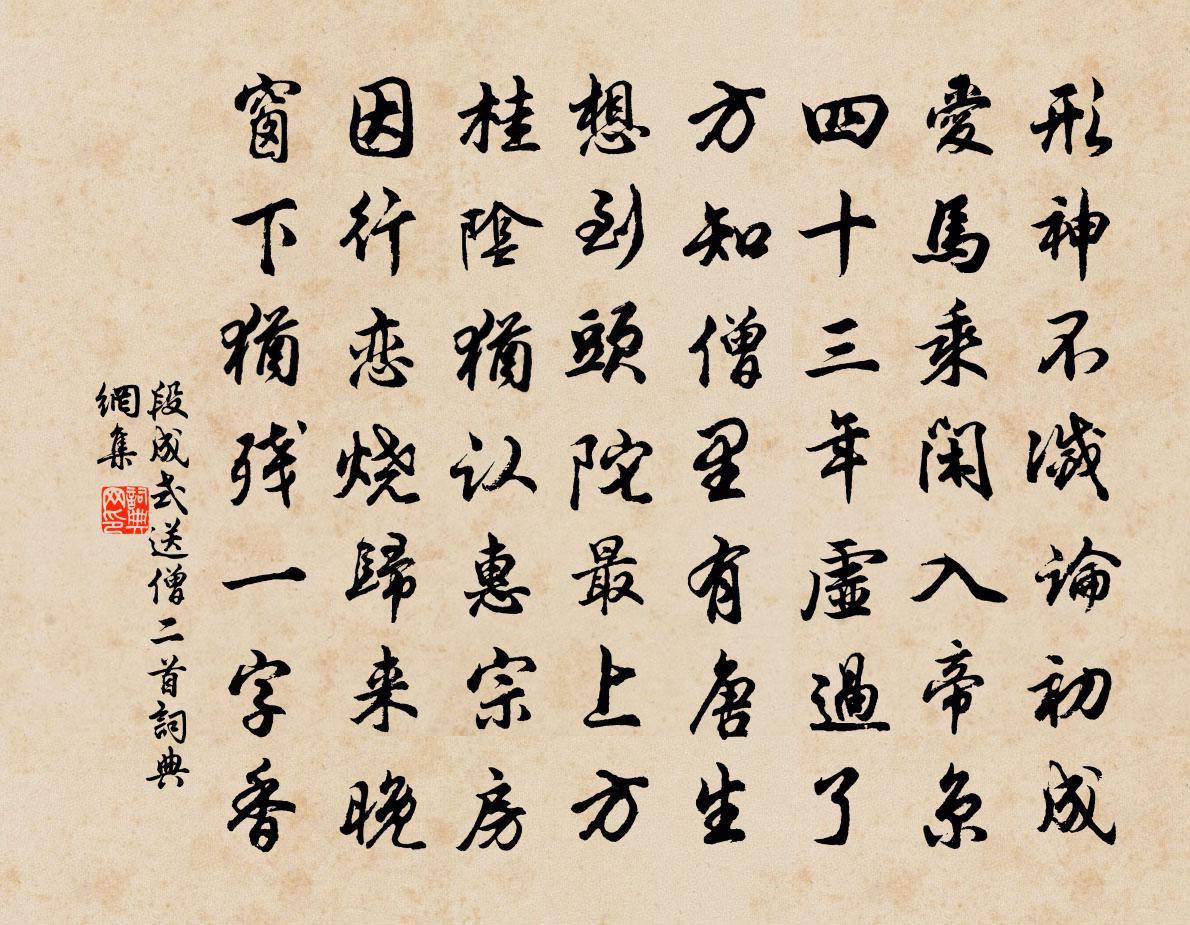 形神不滅論初成
愛馬乘閑入帝京
四十三年虛過了
方知僧里有唐生
想到頭陀最上方
桂陰猶認惠宗房
因行恋燒歸来晚
窗下猶残一字香
段成式送僧二首詞典
網集
詞典
网印